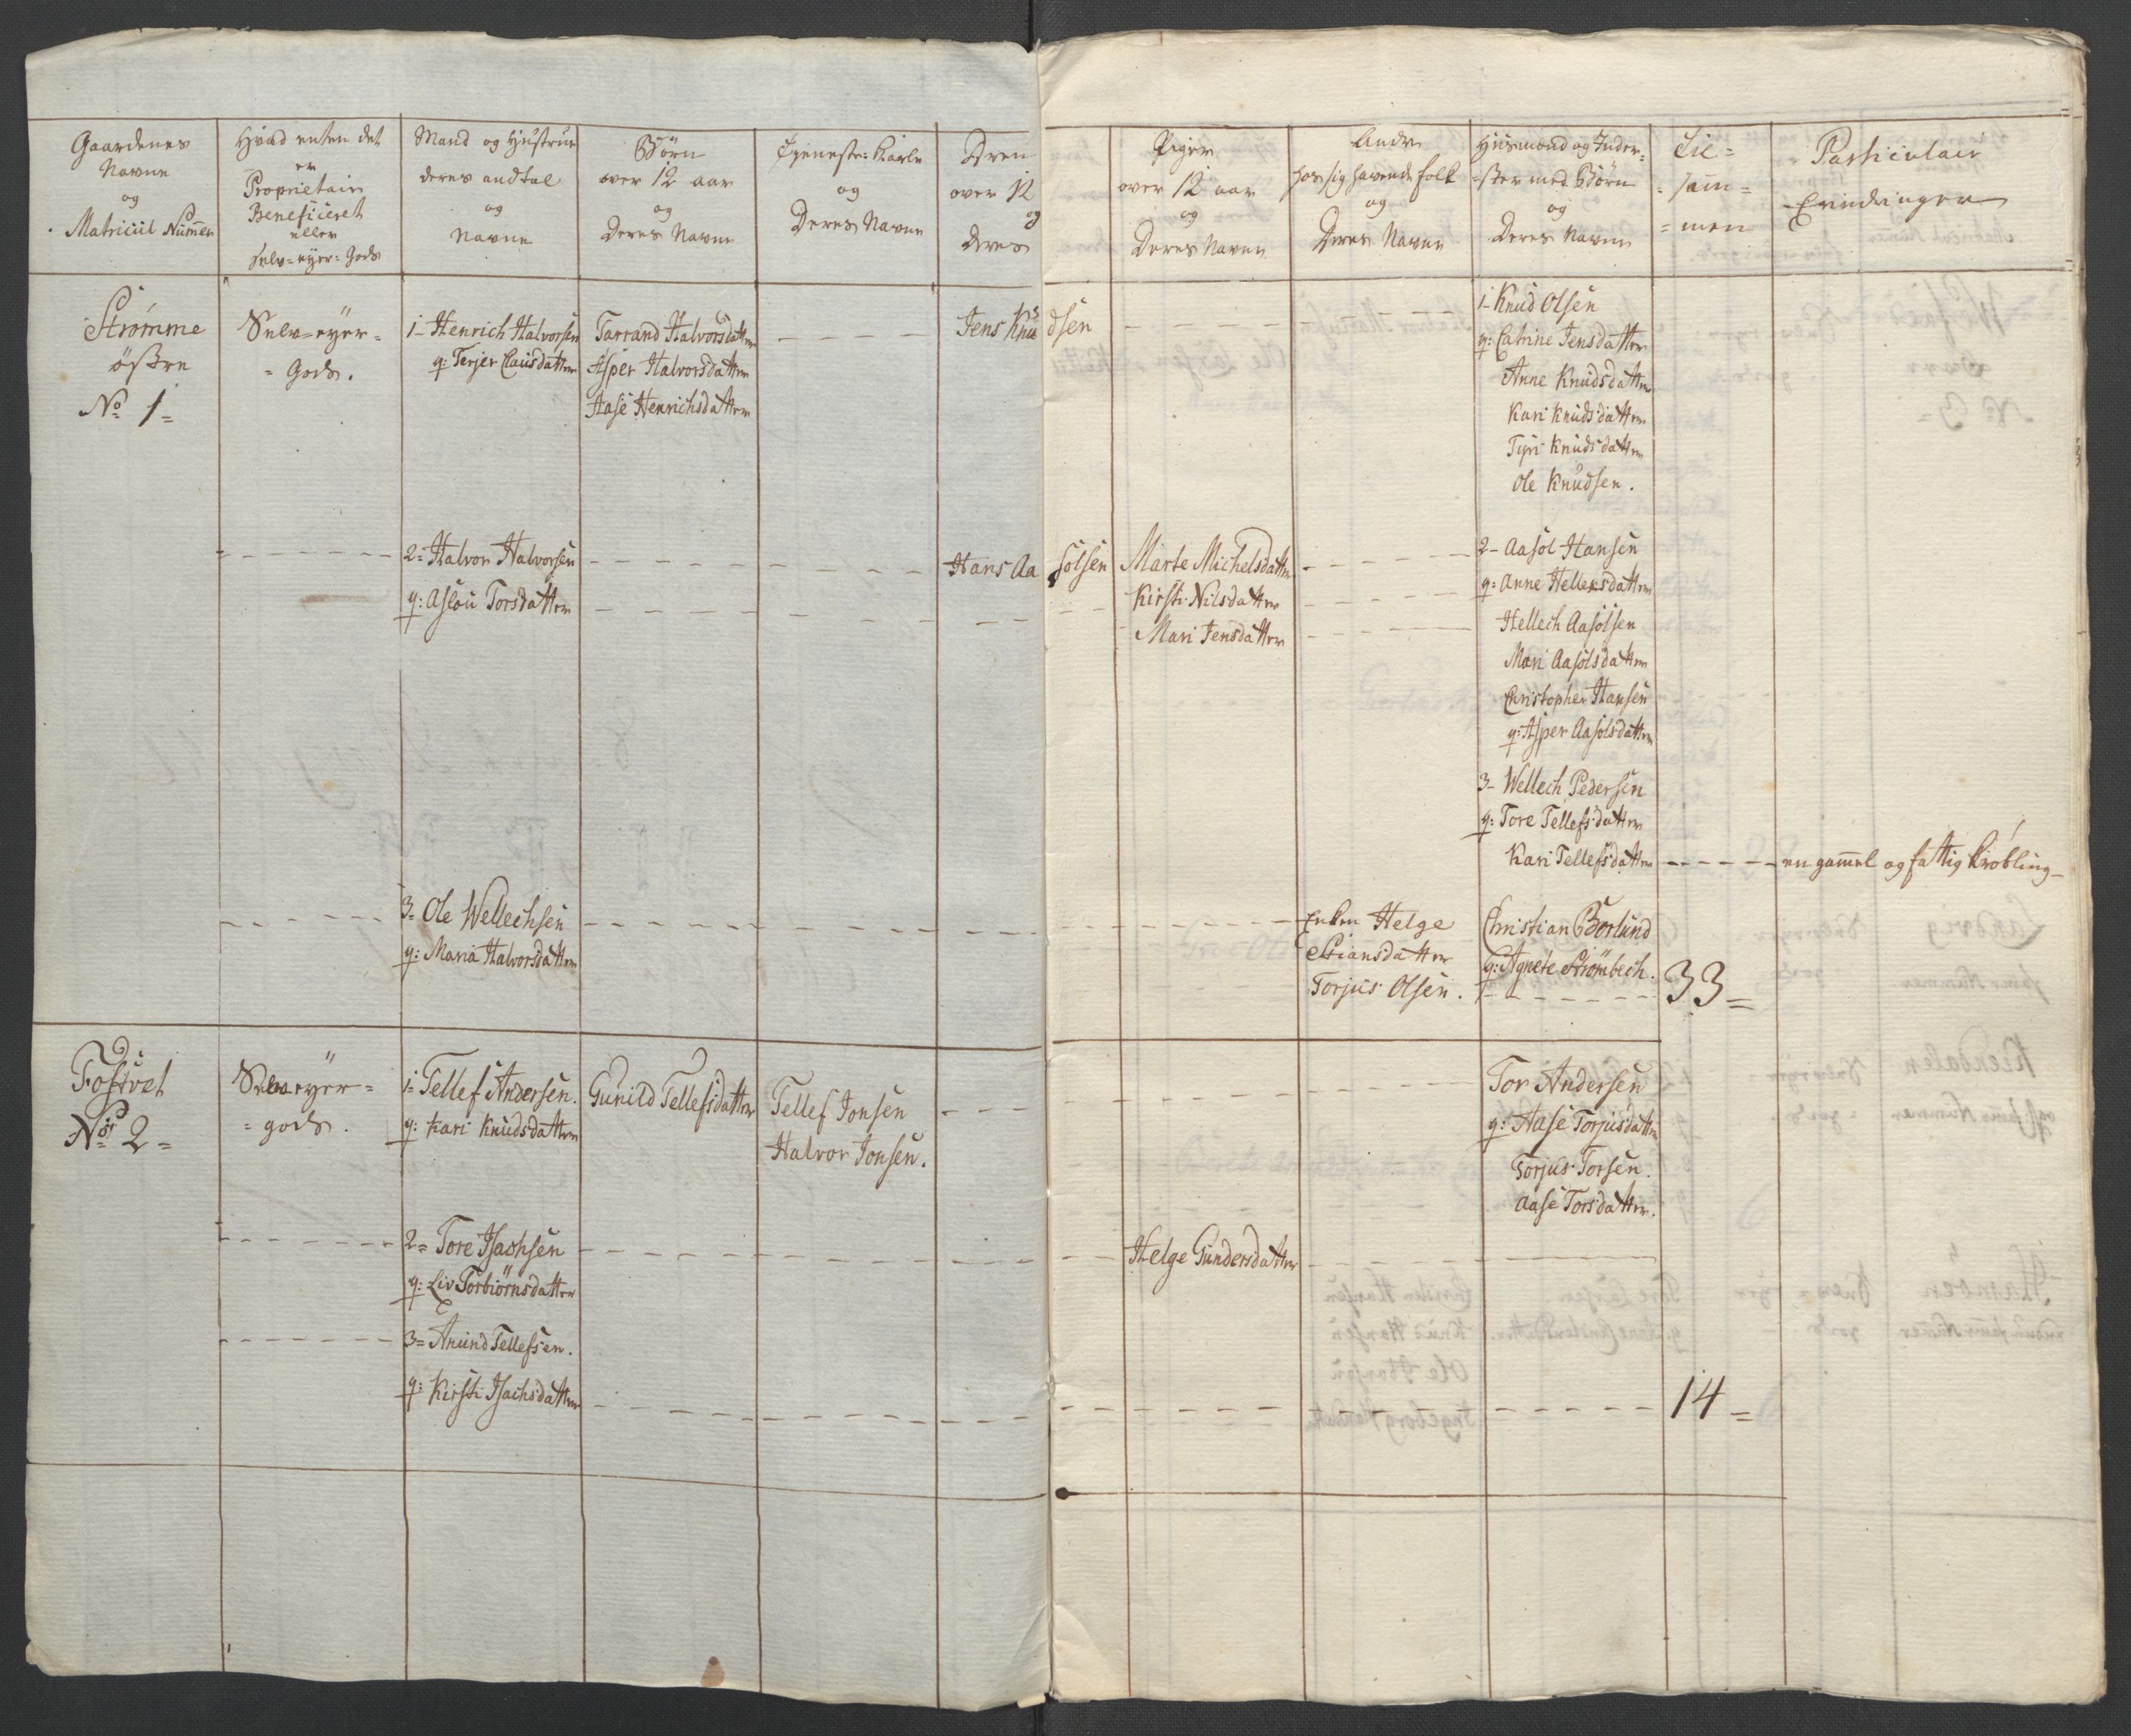 Gaardenes
Navne
og
Matricül Nům̃er
Hvad enten det
er
Proprietair
Beneficeret
eller
Selv-eyer-Gods
Mand og Hustrue
deres andtal
og
Navne
Børn
over 12 aar
og
Deres Navne
Tjeneste-Karle
og
Deres Navne
Dren
over 12
og
deres
Piger
over 12 aar
og
Deres Navne
Andre
hos sig havende folk
og
Deres Navne
Huusmænd og Inder-
-ster med Børn
og
Deres Navne
Til-
-sam̃-
-men
Particulair
Erindringer
Strømme
östre
No 1-
Selv-eyer-
-Gods.
1- Henrich Halvorsen
q: Terjer Clausdatter
Tarrand Halvorsdatter
Asper Halvorsdatter
Aase Henrichsdatter
Jens Knudsen
1- Knud Olsen
q: Catrine Jensdatter
Anne Knudsdatter
Kari Knudsdatter
Tyri Knudsdatter
Ole Knudsen.
2- Halvor Halvorsen
q: Aslou Torsdatter
Hans Aasolsen
Marte Michelsdatter
Kirsti Nilsdatter
Mari Jensdatter
2- Aasol Hansen
q: Anne Hellersdatter
Hellech Aasolsen
Mari Aasolsdatter
Christopher Hansen
q: Asper Aasolsdatter
3- Wellech Pedersen
q: Tore Tellefsdatter
Kari Tellefsdatter
en gam̃el og fattig Krøbling-
3- Ole Wellechsen
q: Maria Halvorsdatter
Enken Helge
Stiansdatter
Torjus Olsen.
Christian Borlund
q: Agnete Strömbech.
33-
Fosvet
No 2-
Selv eyer-
-gods.
1- Tellef Andersen.
q: Kari Knudsdatter
Gunild Tellefsdatter
Tellef Jonsen
Halvor Jonsen.
Tor Andersen
q: Aase Torjusdatter
Torjus Torsen.
Aase Torsdatter.
2- Tore Isachsen
q: Liv Torbiörnsdatter
Helge Gundersdatter
3- Anund Tellefsen.
q: Kirsti Isachsdatter
14-